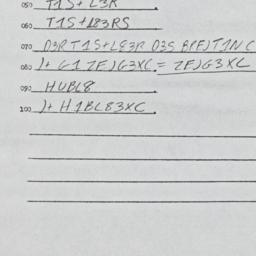 050 T1S+ L3R
060 T1S+L83RS
070 D3R T1S+L83R D3S BREJT1NC
080 J+ G1 ZFJG3XC. = ZFJG3XC
090 HUBL8
100 J+ H1BL83XC.